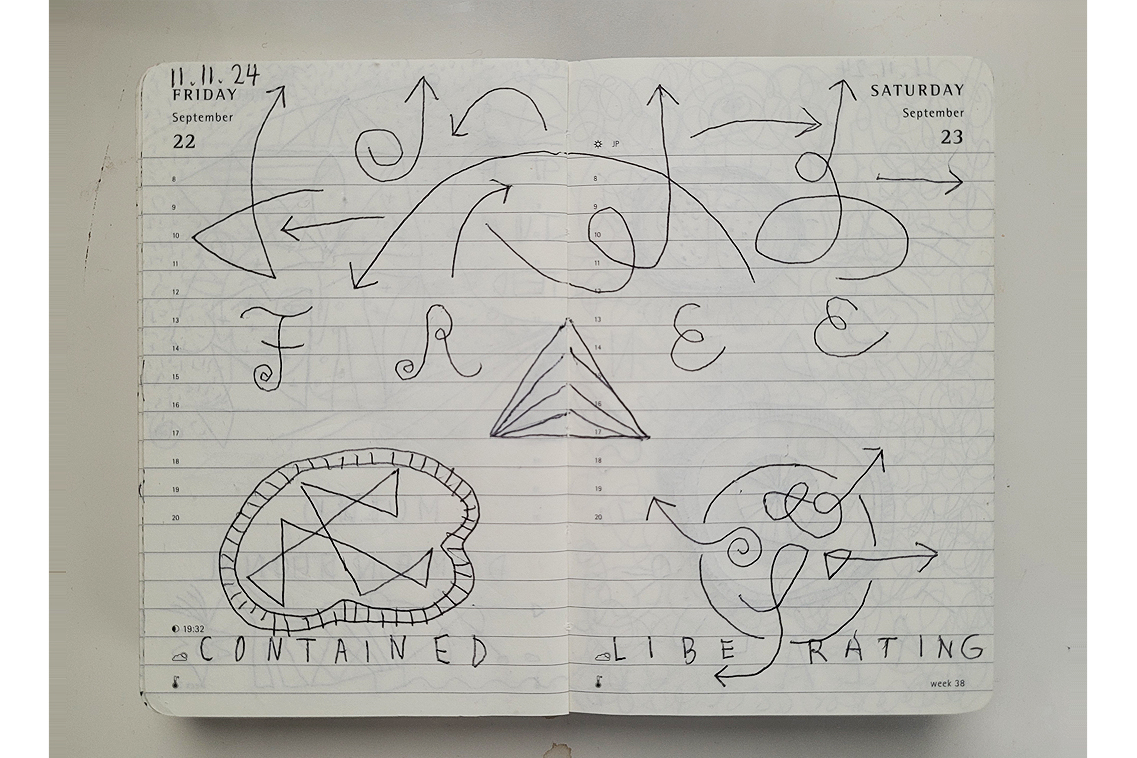 11.11.24
FRIDAY
September
22
8
9
10
11
12
13
14
15
16
17
18
19
20
19:32
SATURDAY
September
23
JP
8
9
10
11
12
13
14
15
16
17
18
19
20
week 38
F R E E
CONTAINED
LIBERATING